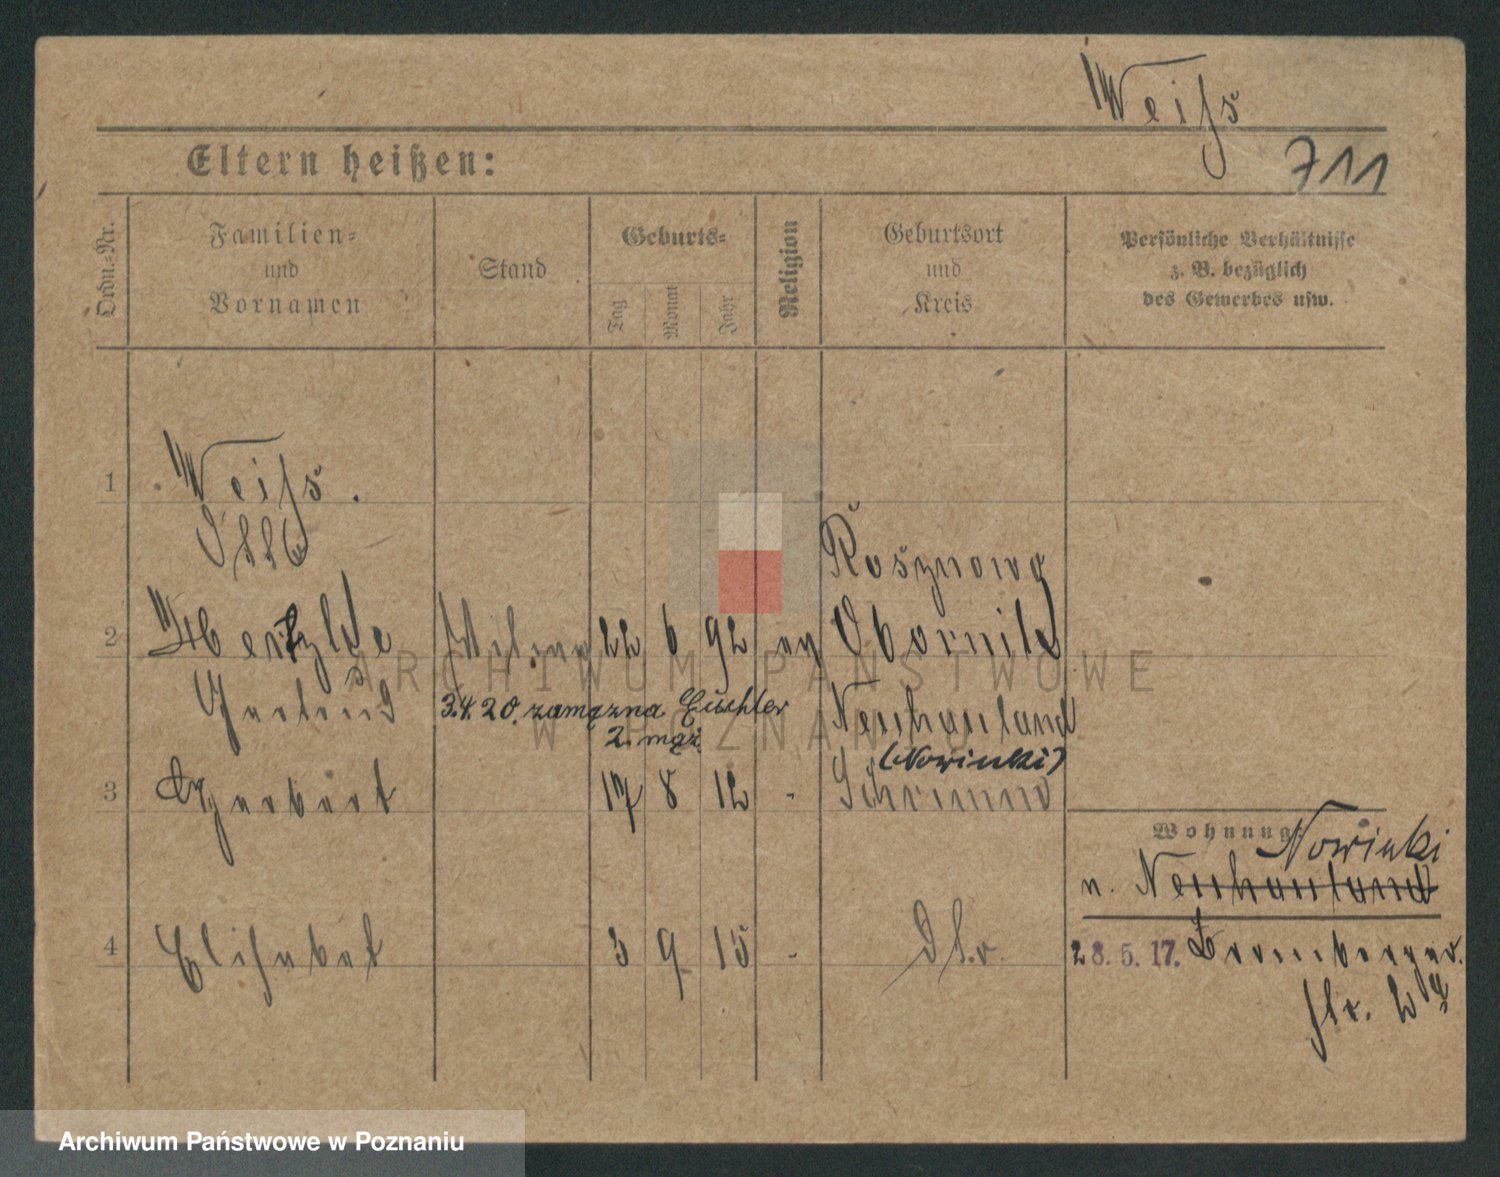 Weiß
711
Eltern heißen:
Ordn.-Nr.
Familien-
und
Vornamen
Stand
Geburts-
Tag
Monat
Jahr
Religion
Geburtsort
und
Kreis
Persönliche Verhältnisse
z. B. bezüglich
des Gewerbes usw.
1 Weiß.
Rosznowo
2 22 6 92 ev Obornik
Gertrud 3.4.20. zamężna Neuhauland
2. mąż (Nowinki)
3 Herbert 17 8 12 - Schrimm
Wohnung:
Nowinki
n. Neuhauland
4 Elisabet 3 9 15 -
28. 5. 17. Bromberger
str. 2
ARCHIWUM PAŃSTWOWE
W POZNANIU
Archiwum Państwowe w Poznaniu